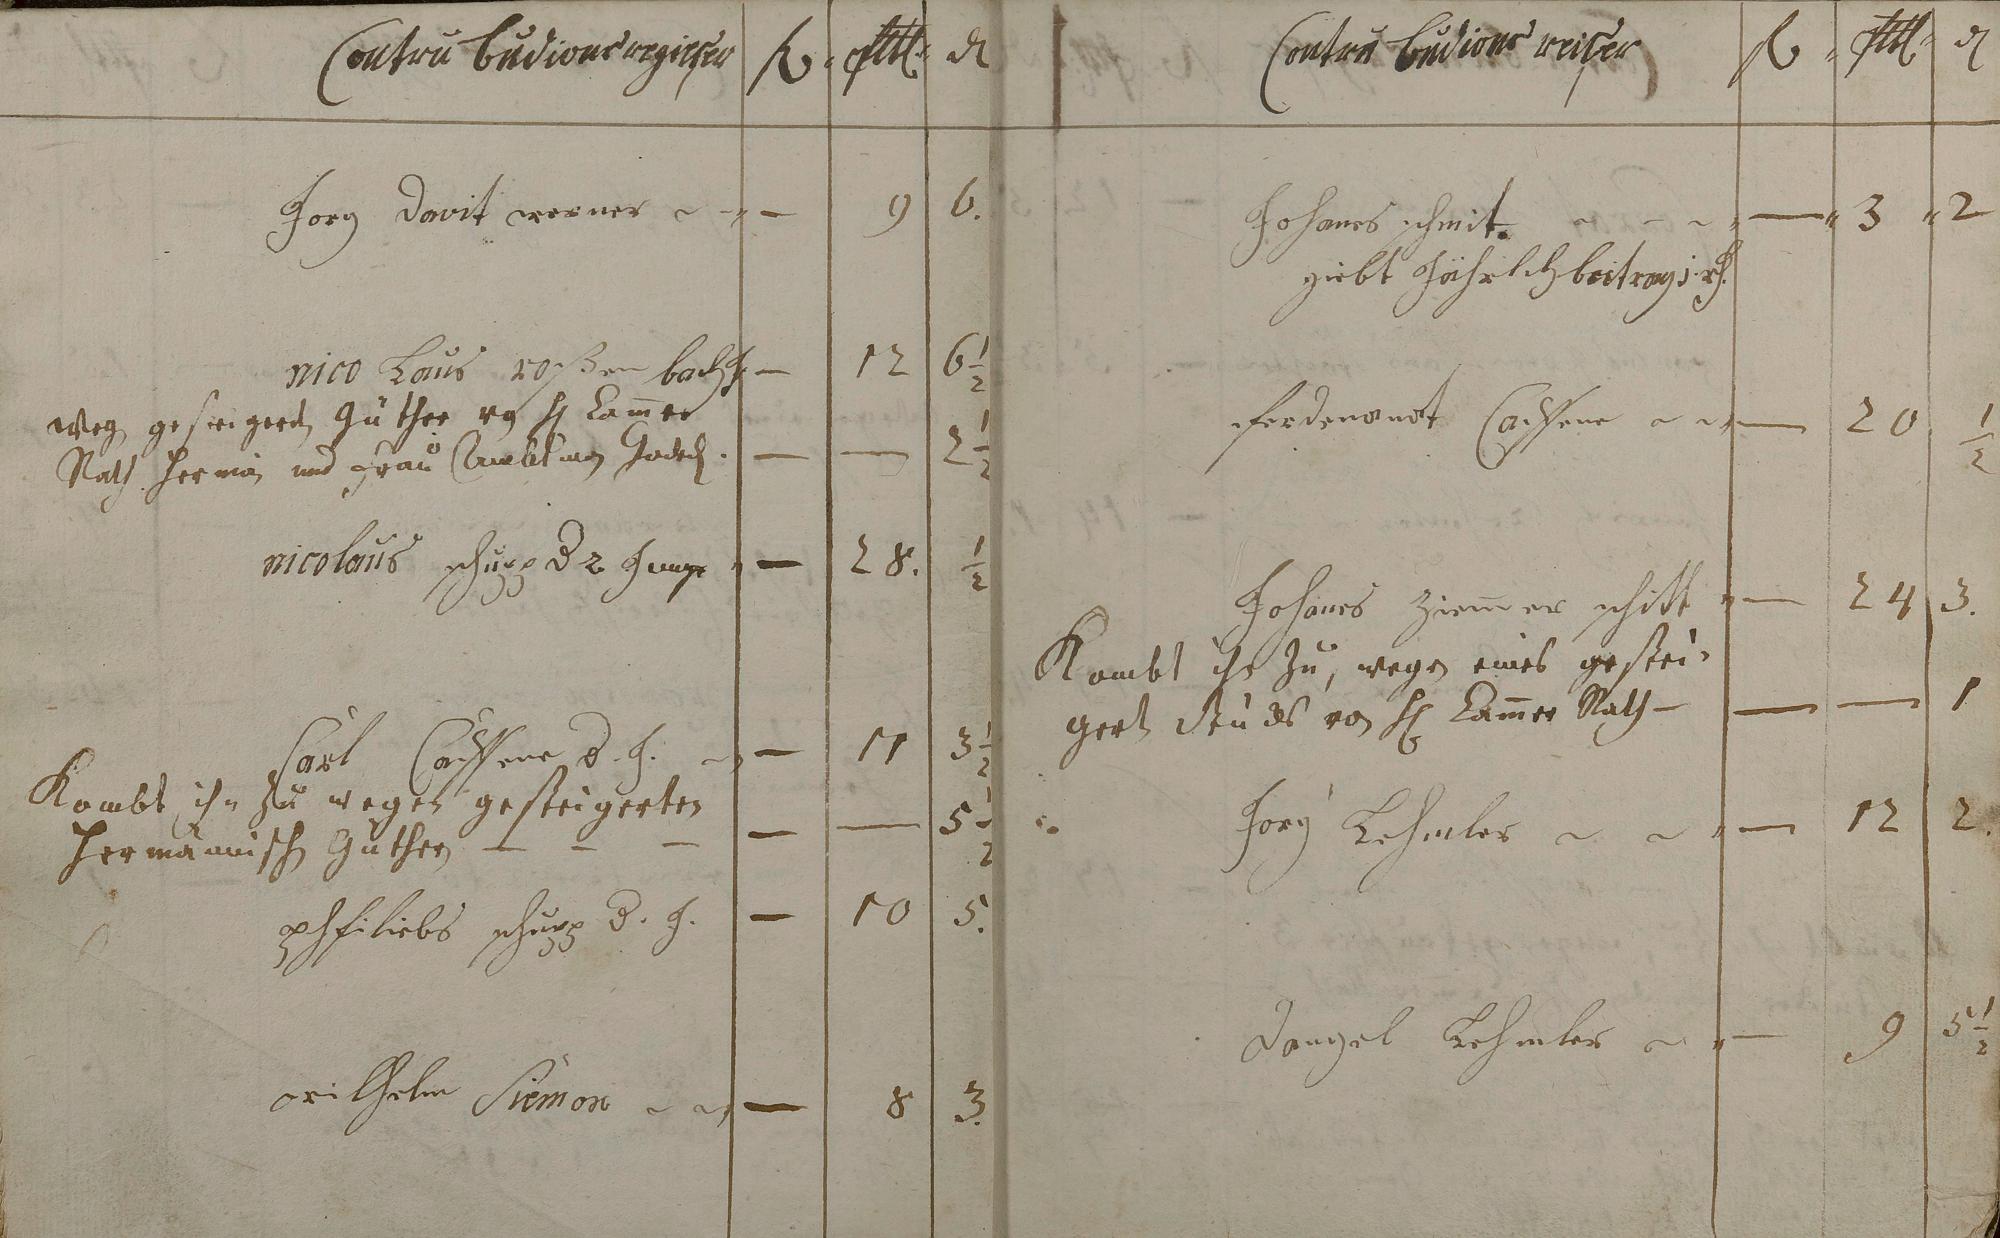 Contrubudions regiester fl alb d
Jorg Davit werner — 9 6.
nico Laus roßenbach — 12 6½
weg gesteigerten Güther von H Cammer
Rath Herman und frau Ambtman — — 2½
nicolaus schupp D 2 Jung — 28. ½
Carl Cachsene D. J. — 11 3½
Kombt ihn Zu wegen gesteigerten
Hermännisch Güthern — — — — — 5½
phfiliebs schupp D. J. — 10 5.
wilhelm Siemon — 8 3.
Contrubudions reister fl alb d
Johanes schmit — 3 2
giebt Jährlich beitrag 1
ferdenanat Cachsene — 20 ½
Johanes Ziemer schitt — 24 3.
Kombt ihn Zu, wegen eines gestei-
gerten stucks von H Cammer Rath — — — 1
Jorg Lehmler — 12 2.
Dangel Lehmler — 9 5½